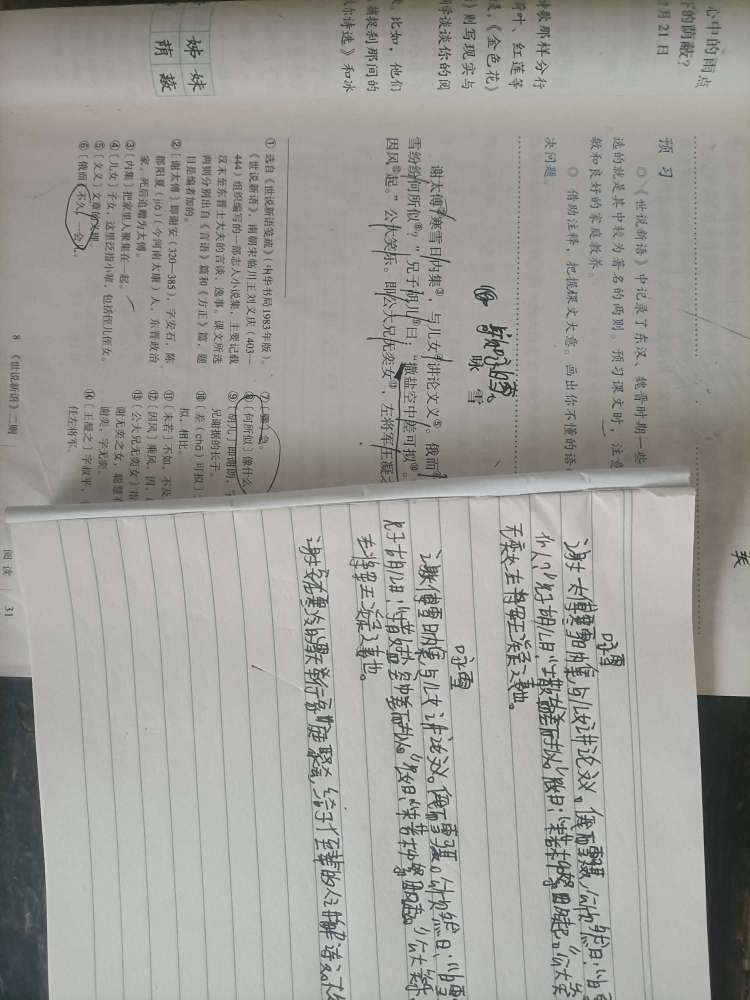 心中的雨点
下的荫蔽?
7月21日
诗歌那样分行
荷叶、红莲等
《金色花》
则写现实与
同学谈谈你的阅
比如,他们
捕捉刹那间的
尔诗选》和冰
姊妹
荫蔽
预习
◎《世说新语》中记录了东汉、魏晋时期一些
选的就是其中较为著名的两则。预习课文时,注意
敏和良好的家庭教养。
◎ 借助注释,把握课文大意。画出你不懂的语
决问题。
咏雪
谢太傅②寒雪日内集③,与儿女④讲论文义⑤。俄而⑥
雪纷纷何所似⑧?”兄子胡儿⑨曰:“撒盐空中差可拟⑩。
因风⑫起。”公大笑乐。即公大兄无奕女⑬,左将军王凝之
① 选自《世说新语笺疏》(中华书局1983年版)。
《世说新语》,南朝宋临川王刘义庆(403—
444)组织编写的一部志人小说集,主要记载
汉末至东晋士大夫的言谈、逸事。课文所选
两则分别出自《言语》篇和《方正》篇,题
目是编者加的。
②〔谢太傅〕即谢安(320—385),字安石,陈
郡阳夏(jiǎ)(今河南太康)人,东晋政治
家。死后追赠为太傅。
③〔内集〕把家里人聚集在一起。
④〔儿女〕子女,这里泛指小辈,包括侄儿侄女。
⑤〔文义〕文章的义理。
⑥〔俄而〕不久,一会儿。
⑦〔骤〕急。
⑧〔何所似〕像什么
⑨〔胡儿〕即谢朗,字
兄谢据的长子。
⑩〔差(chā)可拟〕
拟,相比。
⑪〔未若〕不如,不及
⑫〔因风〕乘风。因,
⑬〔公大兄无奕女〕指
谢无奕之女,聪慧有
谢奕,字无奕。
⑭〔王凝之〕字叔平,
任左将军。
8 《世说新语》二则
阅读 31
咏雪
谢太傅寒雪日内集,与儿女讲论文义。俄而雪骤,公欣然曰:“白雪
兄子胡儿曰:“撒盐空中差可拟。”兄女曰:“未若柳絮因风起。”公大笑
无奕女,左将军王凝之妻也。
咏雪
谢太傅寒雪日内集,与儿女讲论文义。俄而雪骤,公欣然曰:“白雪
兄子胡儿曰:“撒盐空中差可拟。”兄女曰:“未若柳絮因风起。”公大笑乐
左将军王凝之妻也。
谢安在寒冷的雪天举行家庭聚会,给子侄辈的人讲解诗文。不